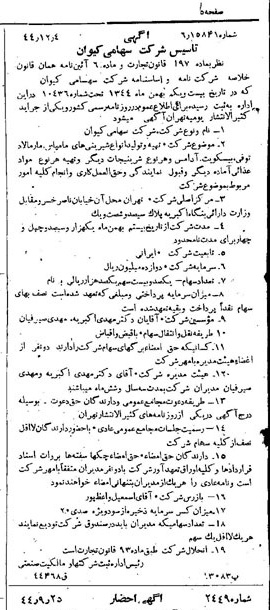 صفحه ۵
شماره ۱۵۸۴۱ر۶ آگهی ۴ر۱۲ر۴۴
تاسیس شرکت سهامی کیوان
نظر بماده ۱۹۷ قانون تجارت و ماده ۶ آئین نامه همان قانون
خلاصه شرکت نامه و اساسنامه شرکت سهامی کیوان
که در تاریخ بیست و یکم بهمن ماه ۱۳۴۴ تحت شماره ۱۰۴۳۶ در این
اداره به ثبت رسیده برای اطلاع عموم در روزنامه رسمی کشور و یکی از جراید
کثیرالانتشار یومیه تهران آگهی میشود
۱ - نام و نوع شرکت - شرکت سهامی کیوان
۲ - موضوع شرکت - تهیه و تولید انواع شیرینی های مامپار، مارمالاد
توفی، بیسکویت، آدامس و هر نوع شیرینیجات دیگر و تهیه هر نوع مواد
غذائی آماده دیگر و قبول نمایندگی و حق العمل کاری و انجام کلیه امور
مربوط بموضوع شرکت
۳ - مرکز اصلی شرکت - تهران محل آن خیابان ناصر خسرو مقابل
وزارت دارائی بنگاه اکبریه پلاک سیصد و شصت و یک
۴ - مدت شرکت از تاریخ بیستم بهمن ماه یکهزار و سیصد و چهل و
چهار برای مدت نامحدود
۵ - تابعیت شرکت - ایرانی
۶ - سرمایه شرکت - دوازده میلیون ریال
۷ - تعداد سهام - یکصد و بیست سهم یکصد هزار ریالی با نام
۸ - میزان سرمایه پرداختی و مبلغی که تعهد شده است نصف بهای
سهام نقدا پرداخت و بقیه تعهد شده است
۹ - مؤسسین شرکت - آقایان دکتر مهدی اکبریه، مهدی صیرفیان
۱۰ - طریقه نقل و انتقال سهام - با قبض و اقباض
۱۱ - کسانیکه حق امضاء برگهای سهام شرکت را دارند دو نفر از
اعضاء هیئت مدیره با مهر شرکت
۱۲ - هیئت مدیره شرکت - آقای دکتر مهدی اکبریه و مهدی
صیرفیان مدیران شرکت بمدت سه سال و شش ماه میباشند
۱۳ - طریقه دعوت مجامع عمومی و دارندگان حق دعوت - بوسیله
درج آگهی در یکی از روزنامه های کثیرالانتشار تهران
۱۴ - رسمیت جلسات مجامع عمومی عادی - با حضور دارندگان لااقل
نصف از کلیه سهام شرکت
۱۵ - دارندگان حق امضاء - حق امضاء چکها سفته ها بروات اسناد
قراردادها و کلیه اوراق تعهد آور شرکت با دو نفر مدیران متفقا با مهر شرکت
است و نامه عادی را هر یک از مدیران بتنهائی امضاء خواهند نمود
۱۶ - بازرس شرکت - آقای اسمعیل واعظ پور
۱۷ - میزان کسر سرمایه ذخیره از سود ویژه صدی ۲۰
۱۸ - تعداد سهامیکه مدیران باید در صندوق شرکت تودیع نمایند
هر یک لااقل یک سهم
۱۹ - انحلال شرکت طبق ماده ۹۳ قانون تجارت است
رئیس اداره ثبت شرکتها و مالکیت صنعتی
پ ۳۰۸۳ ق ۴۴۳۶۸
شماره ۲۴۴۹ آگهی احضار ۲۵ر۹ر۴۴